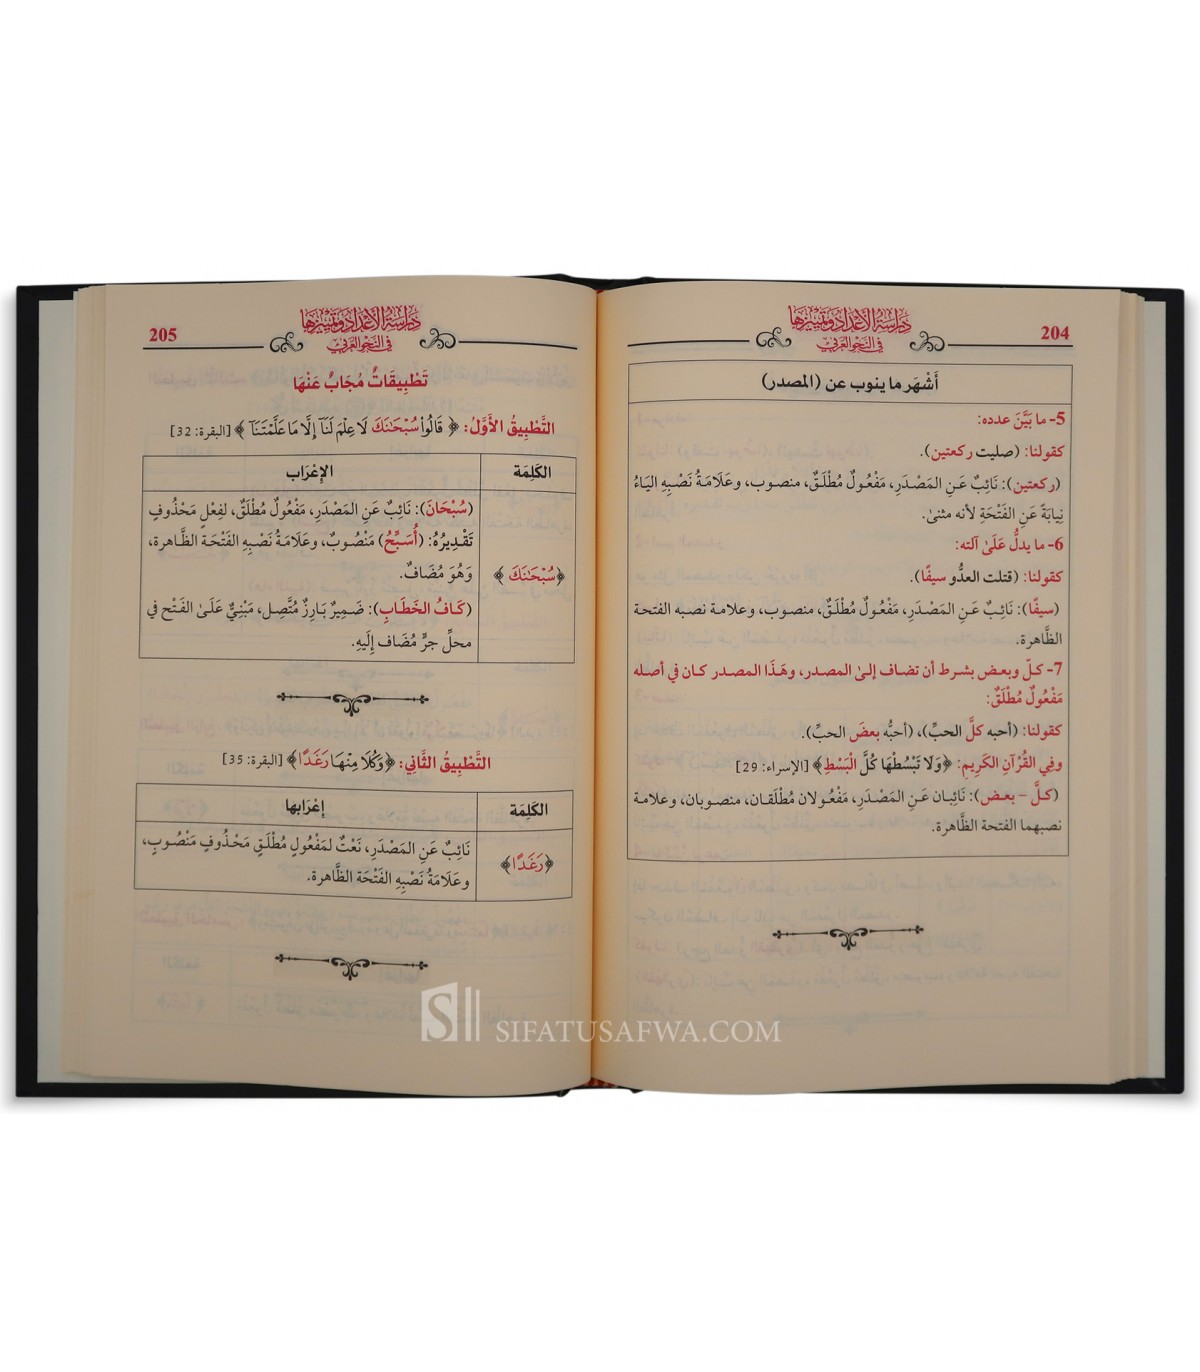 204
دراسة الأعداد وتمييزها
في النحو العربي
أَشْهَر ما ينوب عن (المصدر)
5- ما بَيَّنَ عدده:
كقولنا: (صليت ركعتين).
(ركعتين): نَائِبٌ عَنِ المَصْدَرِ، مَفْعُولٌ مُطْلَقٌ، منصوب، وعلَامَةُ نَصْبِهِ اليَاءُ
نِيابَةً عَنِ الفَتْحَةِ لأنه مثنىٰ.
6- ما يدلُّ عَلَىٰ آلته:
كقولنا: (قتلت العدُّو سيفًا).
(سيفًا): نَائِبٌ عَنِ المَصْدَرِ، مَفْعُولٌ مُطْلَقٌ، منصوب، وعلامة نصبه الفتحة
الظَّاهرة.
7- كلّ وبعض بشرط أن تضاف إلىٰ المصدر، وهَذَا المصدر كان في أصله
مَفْعُولٌ مُطْلَقٌ:
كقولنا: (أحبه كلَّ الحبِّ)، (أحبُّه بعضَ الحبِّ).
وفِي القُرْآنِ الكَرِيمِ: ﴿وَلَا تَبْسُطْهَا كُلَّ الْبَسْطِ﴾ [الإسراء: 29]
(كلَّ – بعض): نَائِبان عَنِ المَصْدَرِ، مَفْعُولان مُطْلَقان، منصوبان، وعلامة
نصبهما الفتحة الظَّاهرة.
205
دراسة الأعداد وتمييزها
في النحو العربي
تَطْبِيقَاتٌ مُجَابٌ عَنْهَا
التَّطْبِيقُ الأَوَّلُ: ﴿ قَالُوا۟ سُبْحَٰنَكَ لَا عِلْمَ لَنَآ إِلَّا مَا عَلَّمْتَنَآ ﴾ [البقرة: 32]
الكَلِمَة الإِعْرَاب
﴿سُبْحَٰنَكَ ﴾ (سُبْحَانَ): نَائِبٌ عَنِ المَصْدَرِ، مَفْعُولٌ مُطْلَقٌ، لفِعْلٍ مَحْذُوفٍ
تَقْدِيرُهُ: (أُسَبِّحُ) مَنْصُوبٌ، وعَلَامَةُ نَصْبِهِ الفَتْحَة الظَّاهرة،
وَهُوَ مُضَافٌ.
(كَافُ الخَطَابِ): ضَمِيرٌ بَارِزٌ مُتَّصِل، مَبْنِيٌّ عَلَىٰ الفَتْح في
محلِّ جرٍّ مُضَاف إِلَيهِ.
التَّطْبِيقُ الثَّانِي: ﴿وَكُلَا مِنْهَا رَغَدًا﴾ [البقرة: 35]
الكَلِمَة إعْرَابها
﴿رَغَدًا﴾ نَائِبٌ عَنِ المَصْدَرِ، نَعْتٌ لمَفْعُولٍ مُطْلَقٍ مَحْذُوفٍ مَنْصُوبٍ،
وعَلَامَةُ نَصْبِهِ الفَتْحَة الظَّاهرة.
SIFATUSAFWA.COM